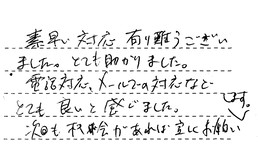 素早い対応有り難うござい
ました。とても助かりました。
電話対応、メールでの対応など
とても良いと感じました。
次回も機会があれば宜しくお願い
します。